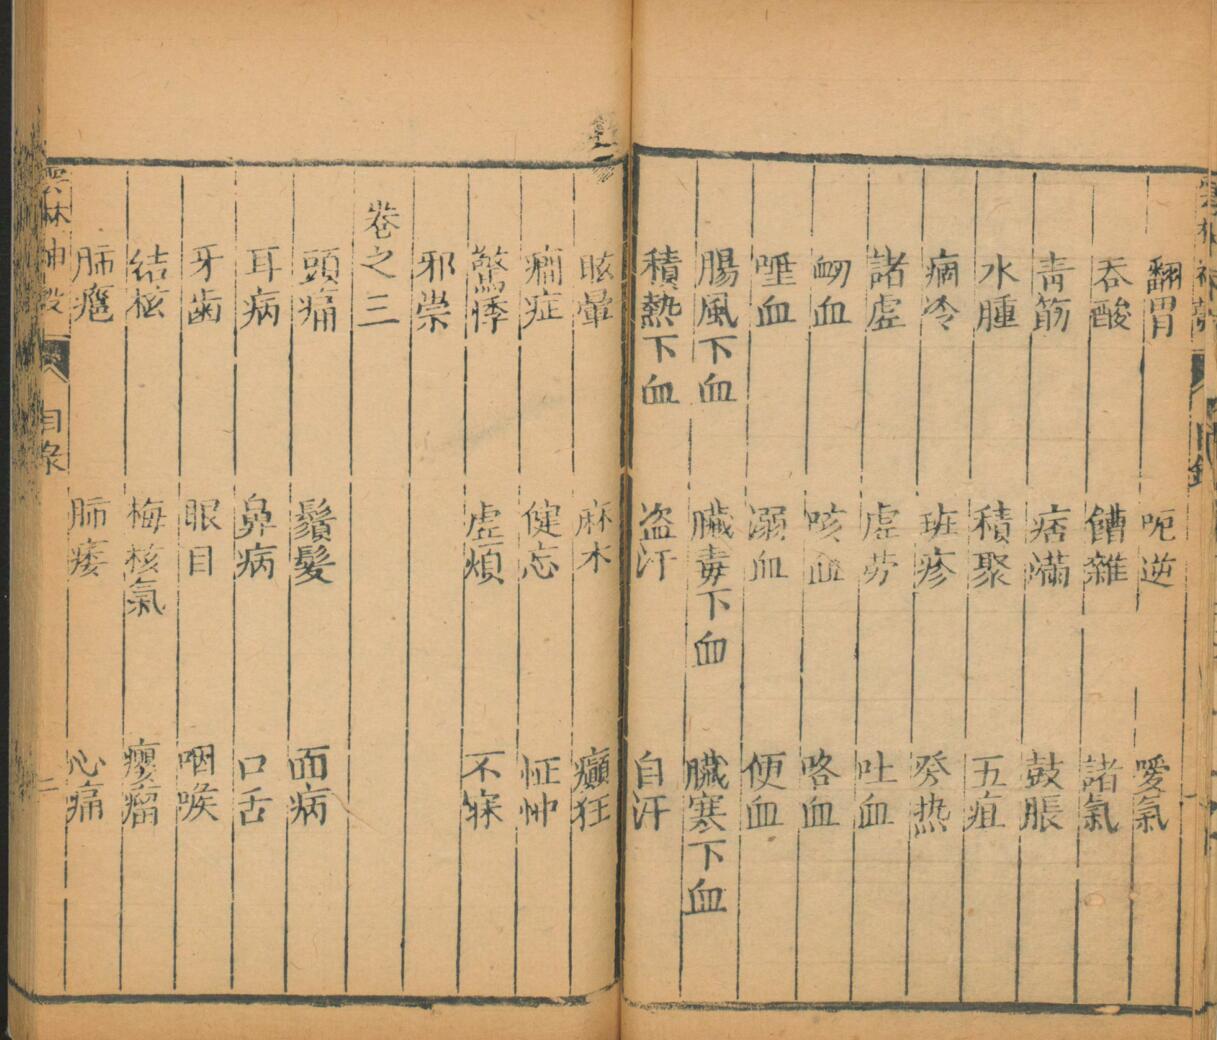 翻胃 呃逆 噯氣
吞酸 饋雜 諸氣
青筋 痞滿 鼓脹
水腫 積聚 五疸
痼冷 班疹 發热
諸虛 虛劳 吐血
衂血 咳血 咯血
唾血 溺血 便血
腸風下血 臟毒下血 臟寒下血
積熱下血 盗汗 自汗
眩暈 麻木 癲狂
癇症 健忘 怔忡
驚悸 虛煩 不寐
邪祟
卷之三
頭痛 鬚髮 面病
耳病 鼻病 口舌
牙齒 眼目 咽喉
結核 梅核氣 癭瘤
肺癰 肺痿 心痛
雲林神彀 目錄 二